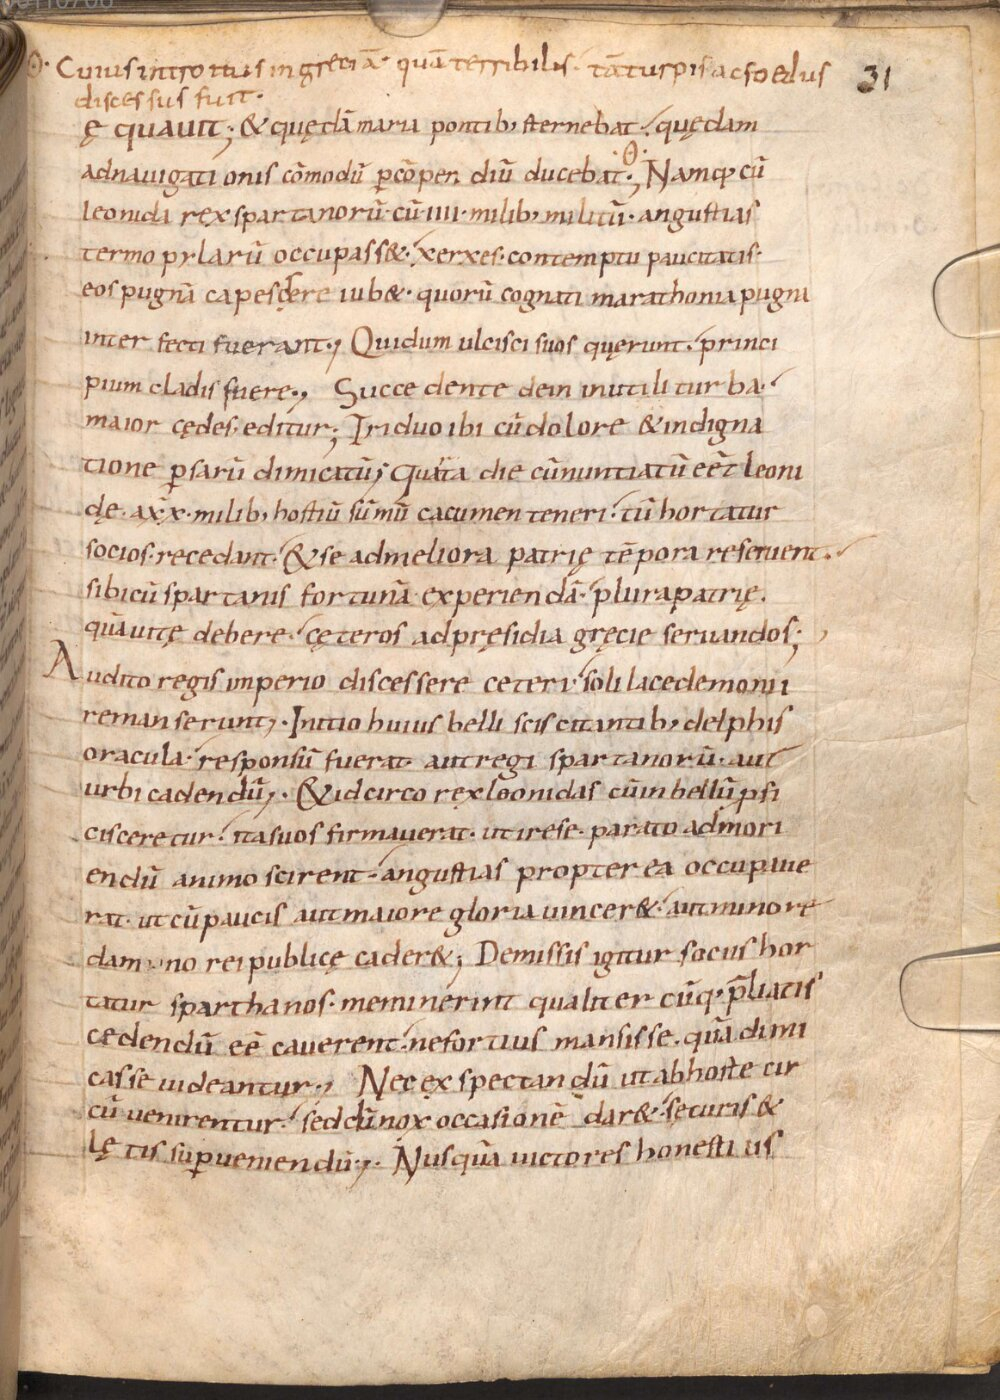 31
ꝋ· Cuius introitus in gręciā· quā terribilis· tā turpis ac foedus
discessus fuit·
ę quauit; & quędā maria pontib; sternebat· quędam
ad nauigationis cōmodū ꝑ cōpendiū ducebat·; Namq; cū
leonida rex spartanorū· cū iiii· milib; militū· angustias
termopylarū occupass&· xerxes· contemptu paucitatis·
eos pugnā capescere iub&· quorū cognati marathonia pugna
interfecti fuerant·; Qui dum ulcisci suos quęrunt· princi
pium cladis fuere·; Succedente dein inutili turba·
maior cędes· editur; Triduo ibi cū dolore & indigna
tione ꝑsarū dimicatū; Quarta die cū nuntiatū eēt leoni
dę· a xx· milib; hostiū summū cacumen teneri· tū hortatur
socios· recedant· & se ad meliora patrię tēpora reseruent·
sibi cū spartanis fortunā experiendā· plura patrię·
quā uitę debere· cęteros ad pręsidia gręcie seruandos;
Audito regis imperio discessere ceteri· soli lacedemonii
remanserunt;· Initio huius belli sciscitantib; delphis
oracula· responsū fuerat· aut regi spartanorū· aut
urbi cadendū;· & idcirco rex leonidas cū in bellū ꝓfi
cisceretur· ita suos firmauerat· ut ire se· parato ad mori
endū animo scirent· angustias propterea occupaue
rat· ut cū paucis aut maiore gloria uincer&· aut minore
damno rei publicę cader&; Demissis igitur sociis hor
tatur sparthanos· meminerint qualiter cūq; p̄liatis
cedendū eē· cauerent· ne fortius mansisse· quā dimi
casse uideantur·; Nec expectandū ut ab hoste cir
cū uenirentur· sed dū nox occasionē dar&· securis &
lętis suꝑueniendū·; Nusquā uictores honestius